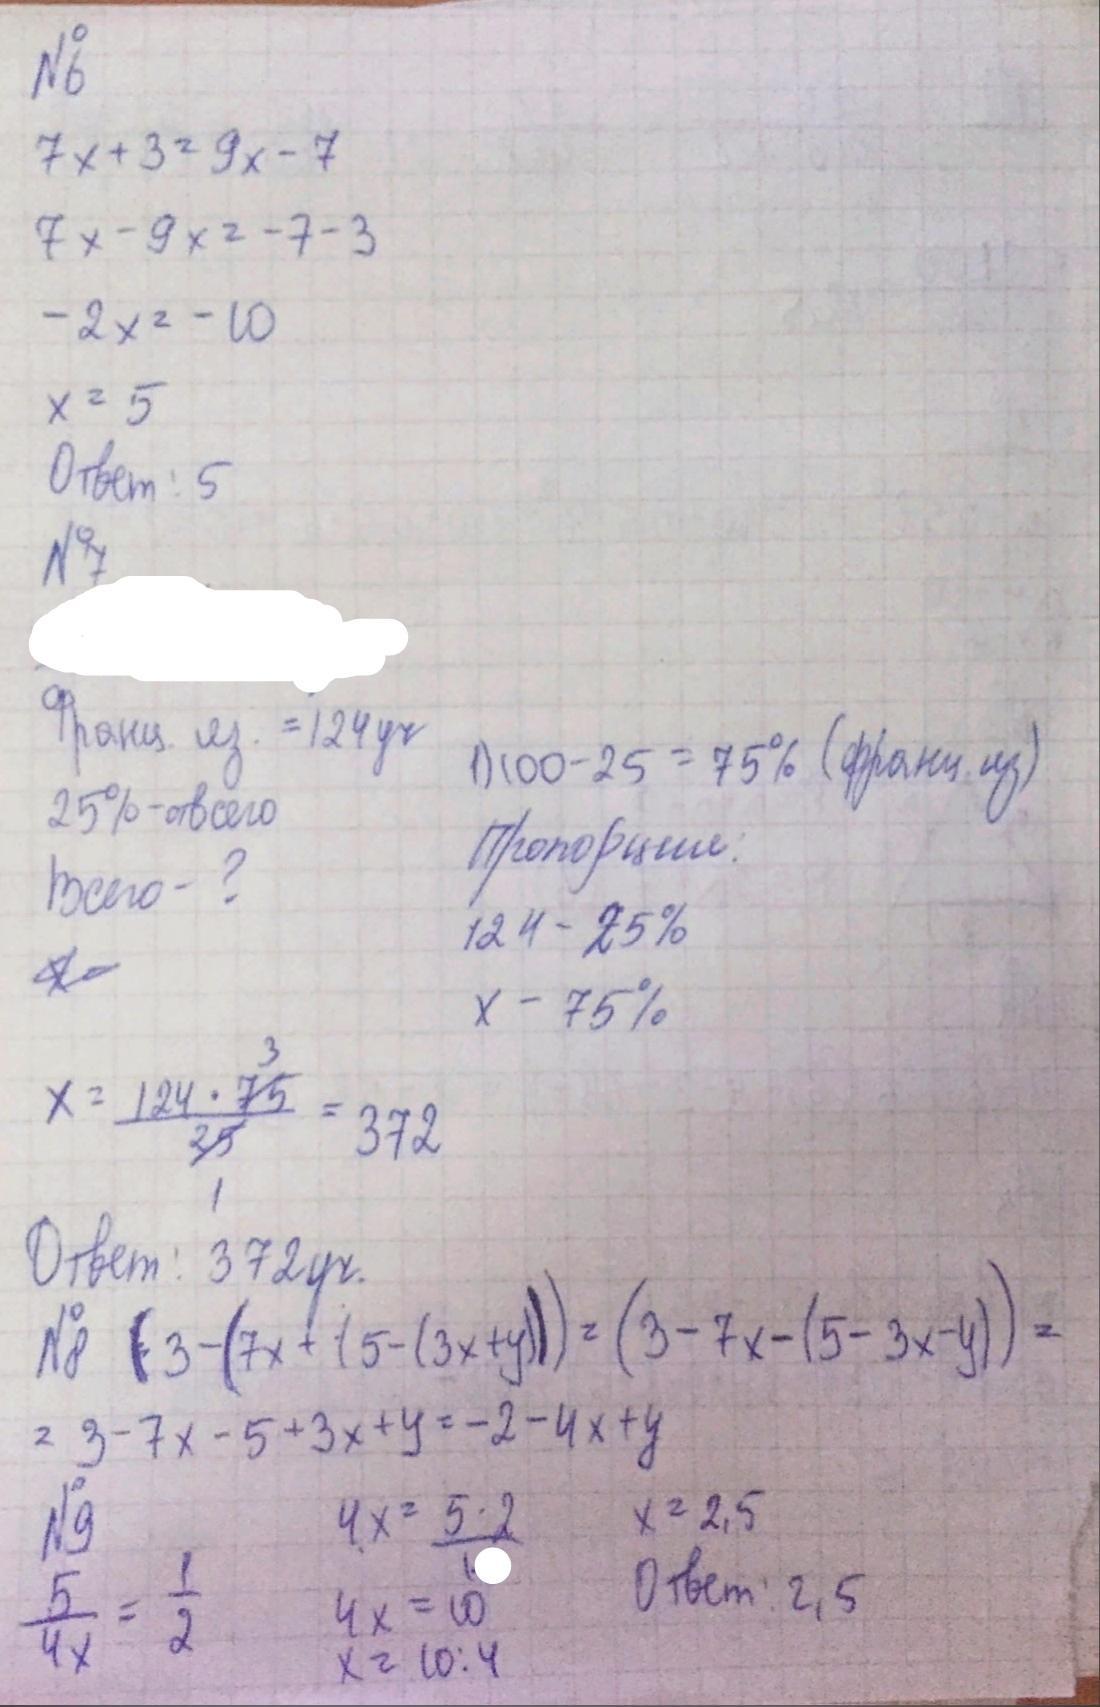 №6
7x+3=9x-7
7x-9x=-7-3
-2x=-10
x=5
Ответ: 5
№7
Франц. яз. =124уч
25%-от всего
Всего-?
1)100-25=75% (франц. яз)
Пропорции:
124-25%
x-75%
x= 124·75 3 / 25 1 =372
Ответ: 372уч.
№8 (3-(7x+(5-(3x+y))))=(3-7x-(5-3x-y))=
=3-7x-5+3x+y=-2-4x+y
№9
5/4x = 1/2
4x= 5·2/1
4x=10
x=10:4
x=2,5
Ответ: 2,5